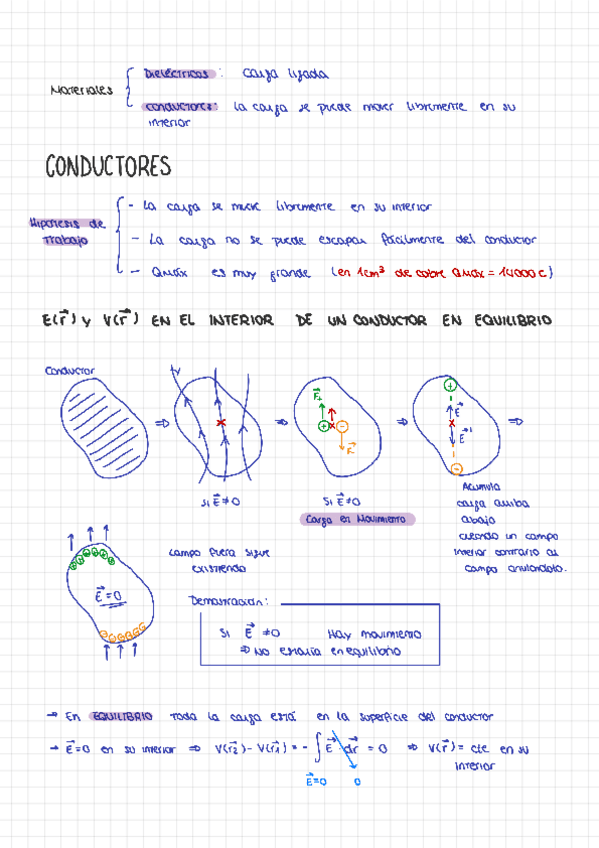 Materiales
Dieléctricos: carga ligada
conductores: la carga se puede mover libremente en su
interior
CONDUCTORES
Hipótesis de
trabajo
- La carga se mueve libremente en su interior
- La carga no se puede escapar fácilmente del conductor
- Qmáx es muy grande (en 1cm³ de cobre Qmáx = 14000 C)
E(r⃗) y V(r⃗) EN EL INTERIOR DE UN CONDUCTOR EN EQUILIBRIO
Conductor
⇒
⇒
F⃗+
+
-
F⃗-
⇒
+
E⃗
E⃗'
-
⇒
Si E⃗ ≠ 0
Si E⃗ ≠ 0
Carga en Movimiento
Acumula
carga arriba
abajo
creando un campo
interior contrario al
campo anulándolo.
E⃗ = 0
campo fuera sigue
existiendo
Demostración:
Si E⃗ ≠ 0 Hay movimiento
⇒ No estaría en equilibrio
→ En EQUILIBRIO toda la carga está en la superficie del conductor
→ E⃗ = 0 en su interior ⇒ V(r⃗2) - V(r⃗1) = - ∫ E⃗ · dr⃗ = 0 ⇒ V(r⃗) = cte. en su
interior
E⃗=0 0